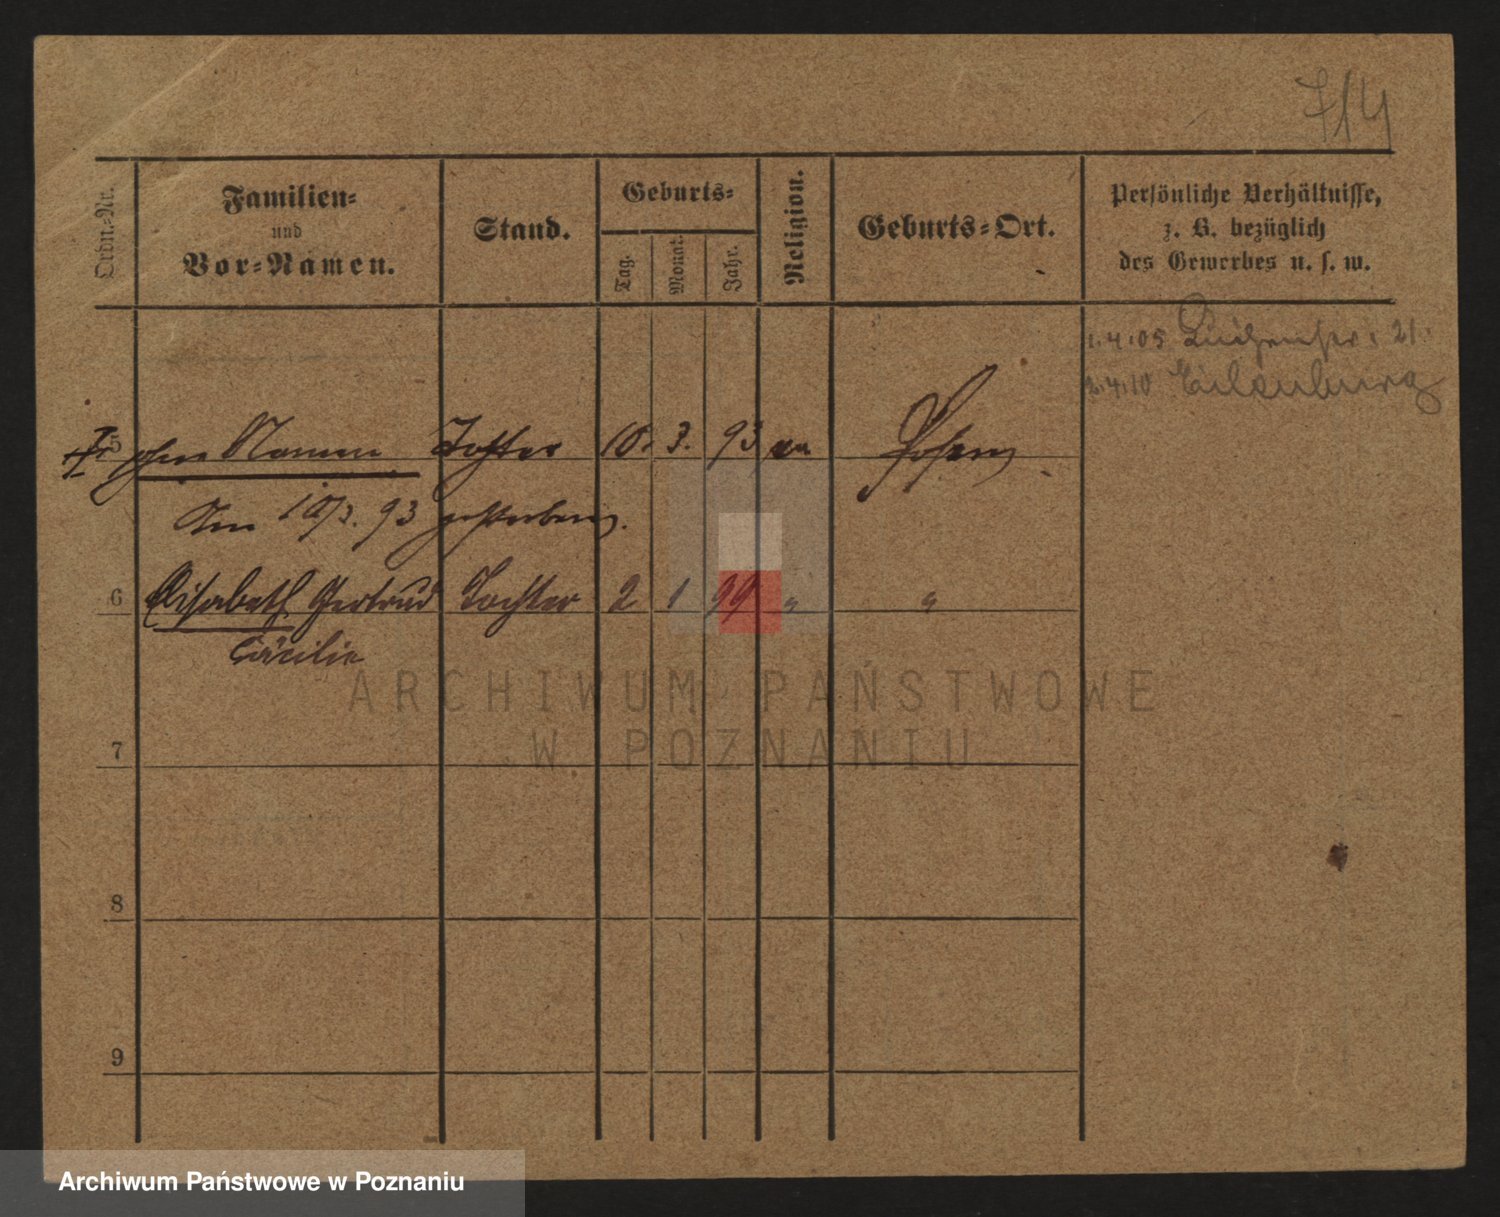 714
Ordn.-Nr.
Familien-
und
Vor-Namen.
Stand.
Geburts-
Tag.
Monat.
Jahr.
Religion.
Geburts-Ort.
Persönliche Verhältnisse,
z. B. bezüglich
des Gewerbes u. s. w.
1.4.05 21.
2.4.10
5 ohne Namen Tochter 10. 3. 93 Posen
Am 10/3. 93 gestorben.
6 Elisabeth Gertrud Tochter 2 1 99 " "
Cäcilie
ARCHIWUM PAŃSTWOWE
W POZNANIU
7
8
9
Archiwum Państwowe w Poznaniu